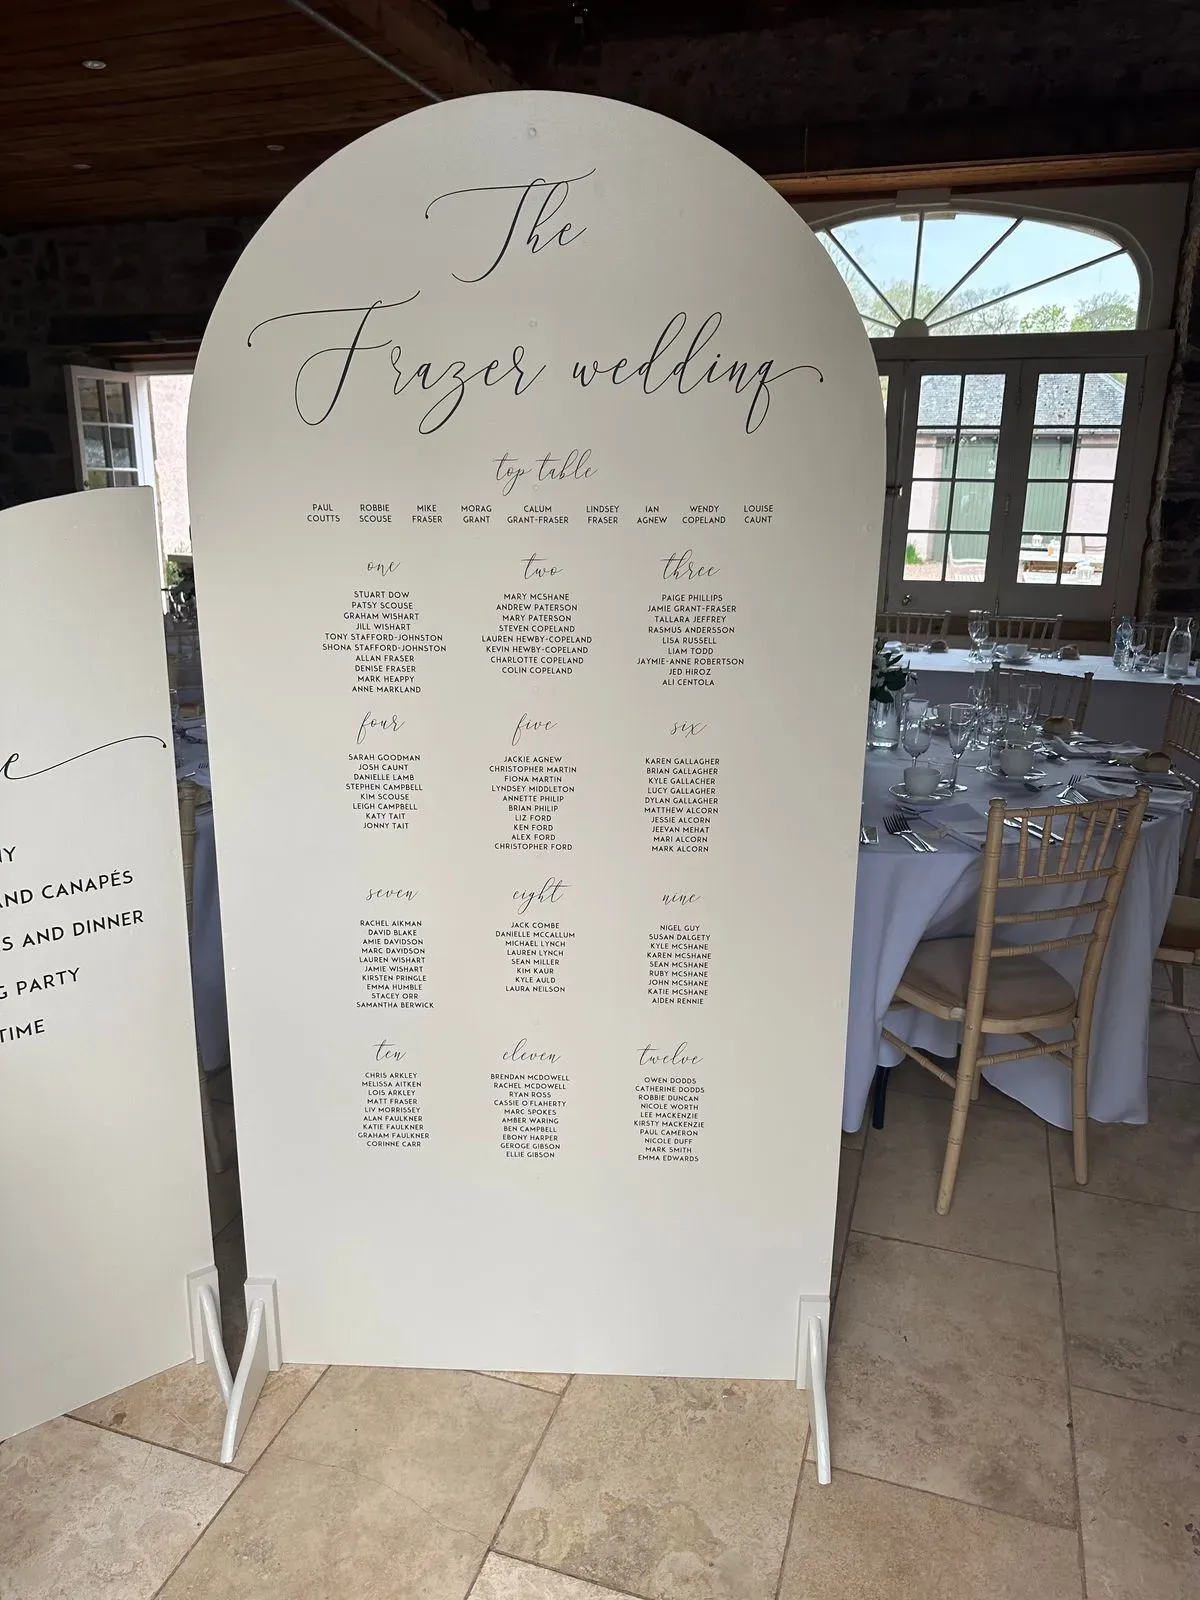 The
Frazer wedding
top table
PAUL COUTTS
ROBBIE SCOUSE
MIKE FRASER
MORAG GRANT
CALUM GRANT-FRASER
LINDSEY FRASER
IAN AGNEW
WENDY COPELAND
LOUISE CAUNT
one
STUART DOW
PATSY SCOUSE
GRAHAM WISHART
JILL WISHART
TONY STAFFORD-JOHNSTON
SHONA STAFFORD-JOHNSTON
ALLAN FRASER
DENISE FRASER
MARK HEAPPY
ANNE MARKLAND
two
MARY MCSHANE
ANDREW PATERSON
MARY PATERSON
STEVEN COPELAND
LAUREN HEWBY-COPELAND
KEVIN HEWBY-COPELAND
CHARLOTTE COPELAND
COLIN COPELAND
three
PAIGE PHILLIPS
JAMIE GRANT-FRASER
TALLARA JEFFREY
RASMUS ANDERSSON
LISA RUSSELL
LIAM TODD
JAYMIE-ANNE ROBERTSON
JED HIROZ
ALI CENTOLA
four
SARAH GOODMAN
JOSH CAUNT
DANIELLE LAMB
STEPHEN CAMPBELL
KIM SCOUSE
LEIGH CAMPBELL
KATY TAIT
JONNY TAIT
five
JACKIE AGNEW
CHRISTOPHER MARTIN
FIONA MARTIN
LYNDSEY MIDDLETON
ANNETTE PHILIP
BRIAN PHILIP
LIZ FORD
KEN FORD
ALEX FORD
CHRISTOPHER FORD
six
KAREN GALLAGHER
BRIAN GALLAGHER
KYLE GALLACHER
LUCY GALLAGHER
DYLAN GALLAGHER
MATTHEW ALCORN
JESSIE ALCORN
JEEVAN MEHAT
MARI ALCORN
MARK ALCORN
seven
RACHEL AIKMAN
DAVID BLAKE
AMIE DAVIDSON
MARC DAVIDSON
LAUREN WISHART
JAMIE WISHART
KIRSTEN PRINGLE
EMMA HUMBLE
STACEY ORR
SAMANTHA BERWICK
eight
JACK COMBE
DANIELLE MCCALLUM
MICHAEL LYNCH
LAUREN LYNCH
SEAN MILLER
KIM KAUR
KYLE AULD
LAURA NEILSON
nine
NIGEL GUY
SUSAN DALGETY
KYLE MCSHANE
KAREN MCSHANE
SEAN MCSHANE
RUBY MCSHANE
JOHN MCSHANE
KATIE MCSHANE
AIDEN RENNIE
ten
CHRIS ARKLEY
MELISSA AITKEN
LOIS ARKLEY
MATT FRASER
LIV MORRISSEY
ALAN FAULKNER
KATIE FAULKNER
GRAHAM FAULKNER
CORINNE CARR
eleven
BRENDAN MCDOWELL
RACHEL MCDOWELL
RYAN ROSS
CASSIE O'FLAHERTY
MARC SPOKES
AMBER WARING
BEN CAMPBELL
EBONY HARPER
GEROGE GIBSON
ELLIE GIBSON
twelve
OWEN DODDS
CATHERINE DODDS
ROBBIE DUNCAN
NICOLE WORTH
LEE MACKENZIE
KIRSTY MACKENZIE
PAUL CAMERON
NICOLE DUFF
MARK SMITH
EMMA EDWARDS
AND CANAPÉS
AND DINNER
PARTY
TIME